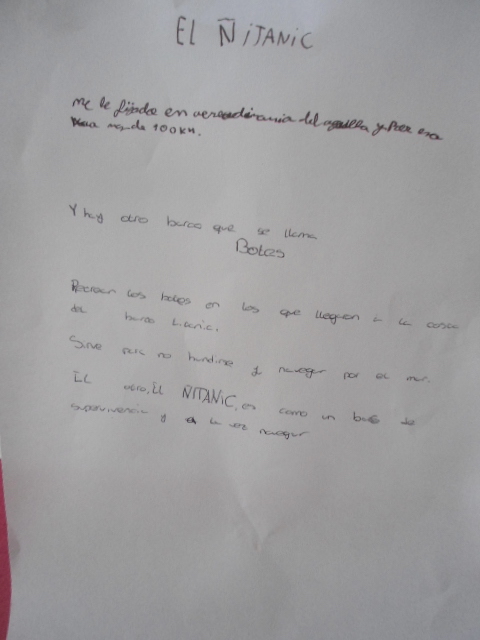 EL ÑITANIC
me he fijado en del y Por esa
mas de 100KM.
Y hay otro barco que se llama
Botes
Recrean los botes en los que llegaron a la costa
del barco titanic.
Sirve para no hundirse y navegar por el mar.
EL otro, EL ÑITANIC, es como un bote de
supervivencia y a la vez navegar